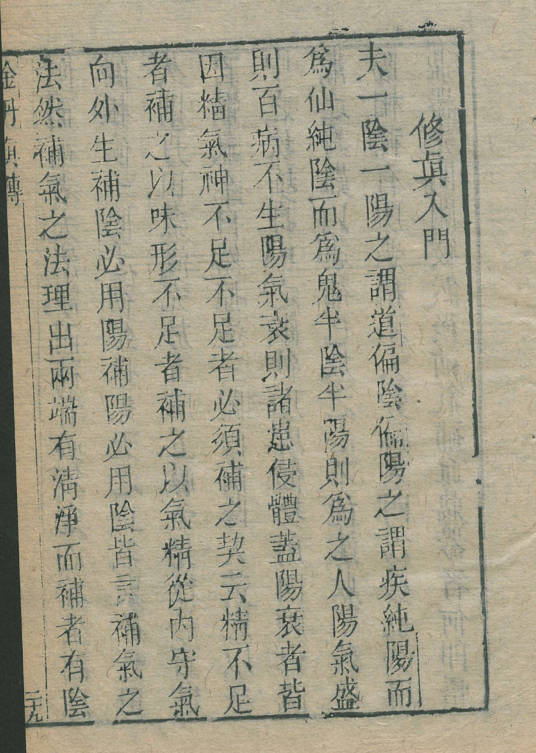 修眞入門
夫一陰一陽之謂道偏陰偏陽之謂疾純陽而
爲仙純陰而爲鬼半陰半陽則爲之人陽氣盛
則百病不生陽氣衰則諸患侵體蓋陽衰者皆
因精氣神不足不足者必須補之契云精不足
者補之以味形不足者補之以氣精從內守氣
向外生補陰必用陽補陽必用陰皆言補氣之
法然補氣之法理出兩端有清淨而補者有陰
金丹眞傳
二十九